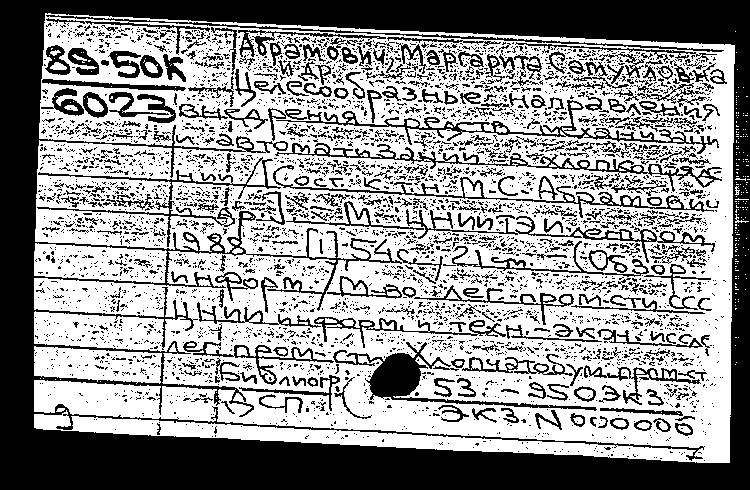 89-50К
6023
Абрамович, Маргарита Самуиловна
и др.
Целесообразные направления
внедрения средств механизаци
и автоматизации в хлопкопряде
нии / [Сост. к.т.н. М.С. Абрамович
и др.] - М.: ЦНИИТЭИлегпром,
1988. - [1], 54с., 21 см. - (Обзор.
информ. / М-во лег. пром-сти ССС
ЦНИИ информ. и техн.-экон. иссле
лег. пром-сти. Хлопчатобум. пром-ст
Библиогр.: 53. - 950экз
ДСП.
Экз. N 000006
9